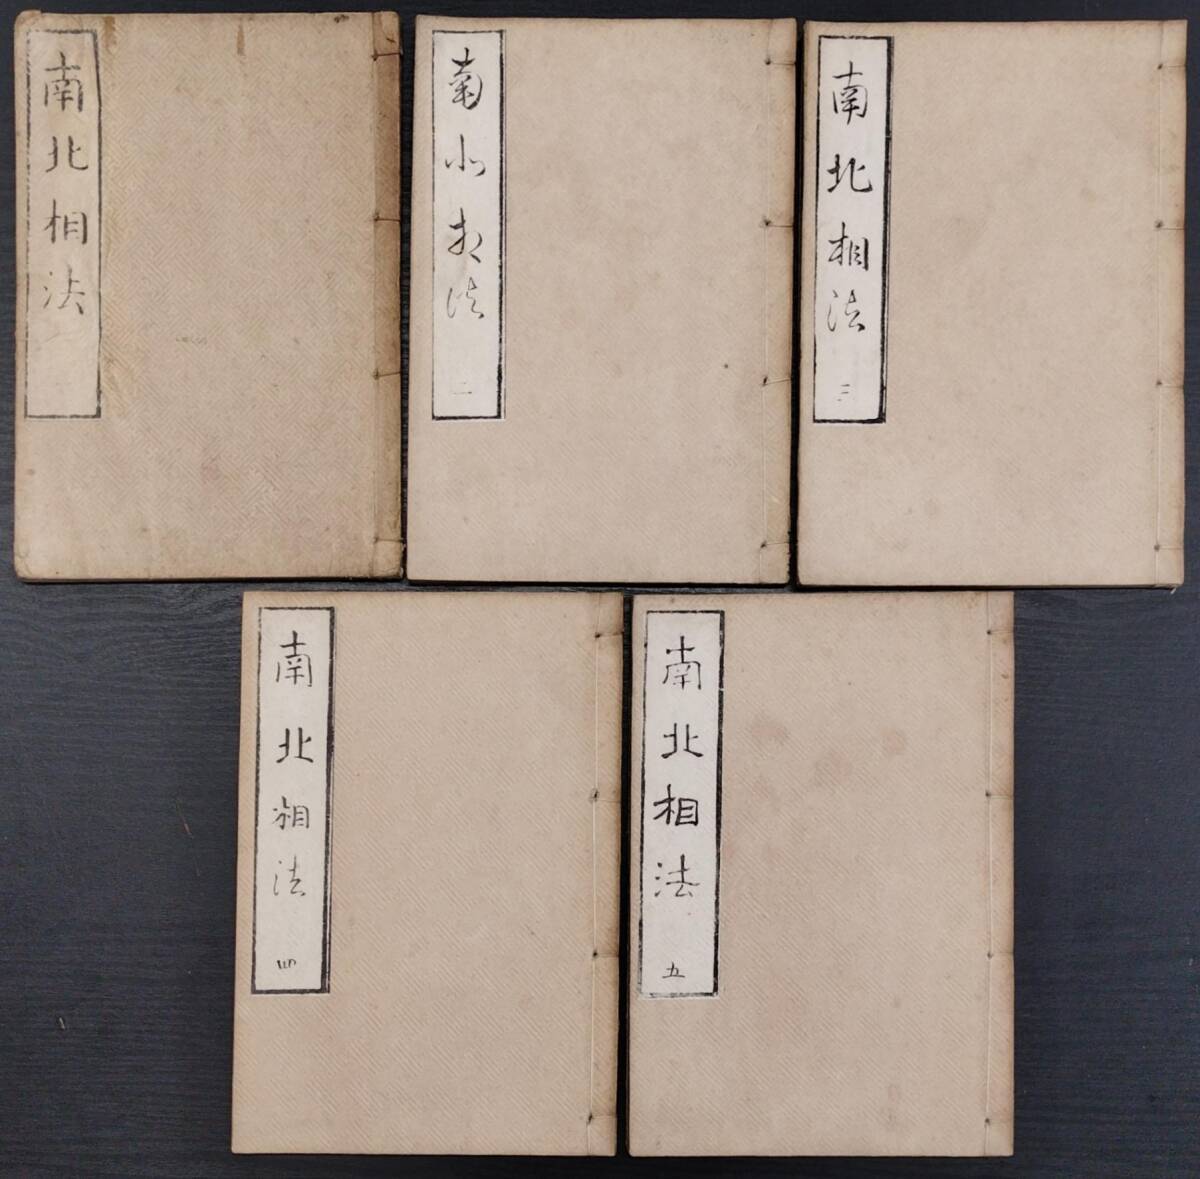 南北相法
南北相法
二
南北相法
三
南北相法
四
南北相法
五